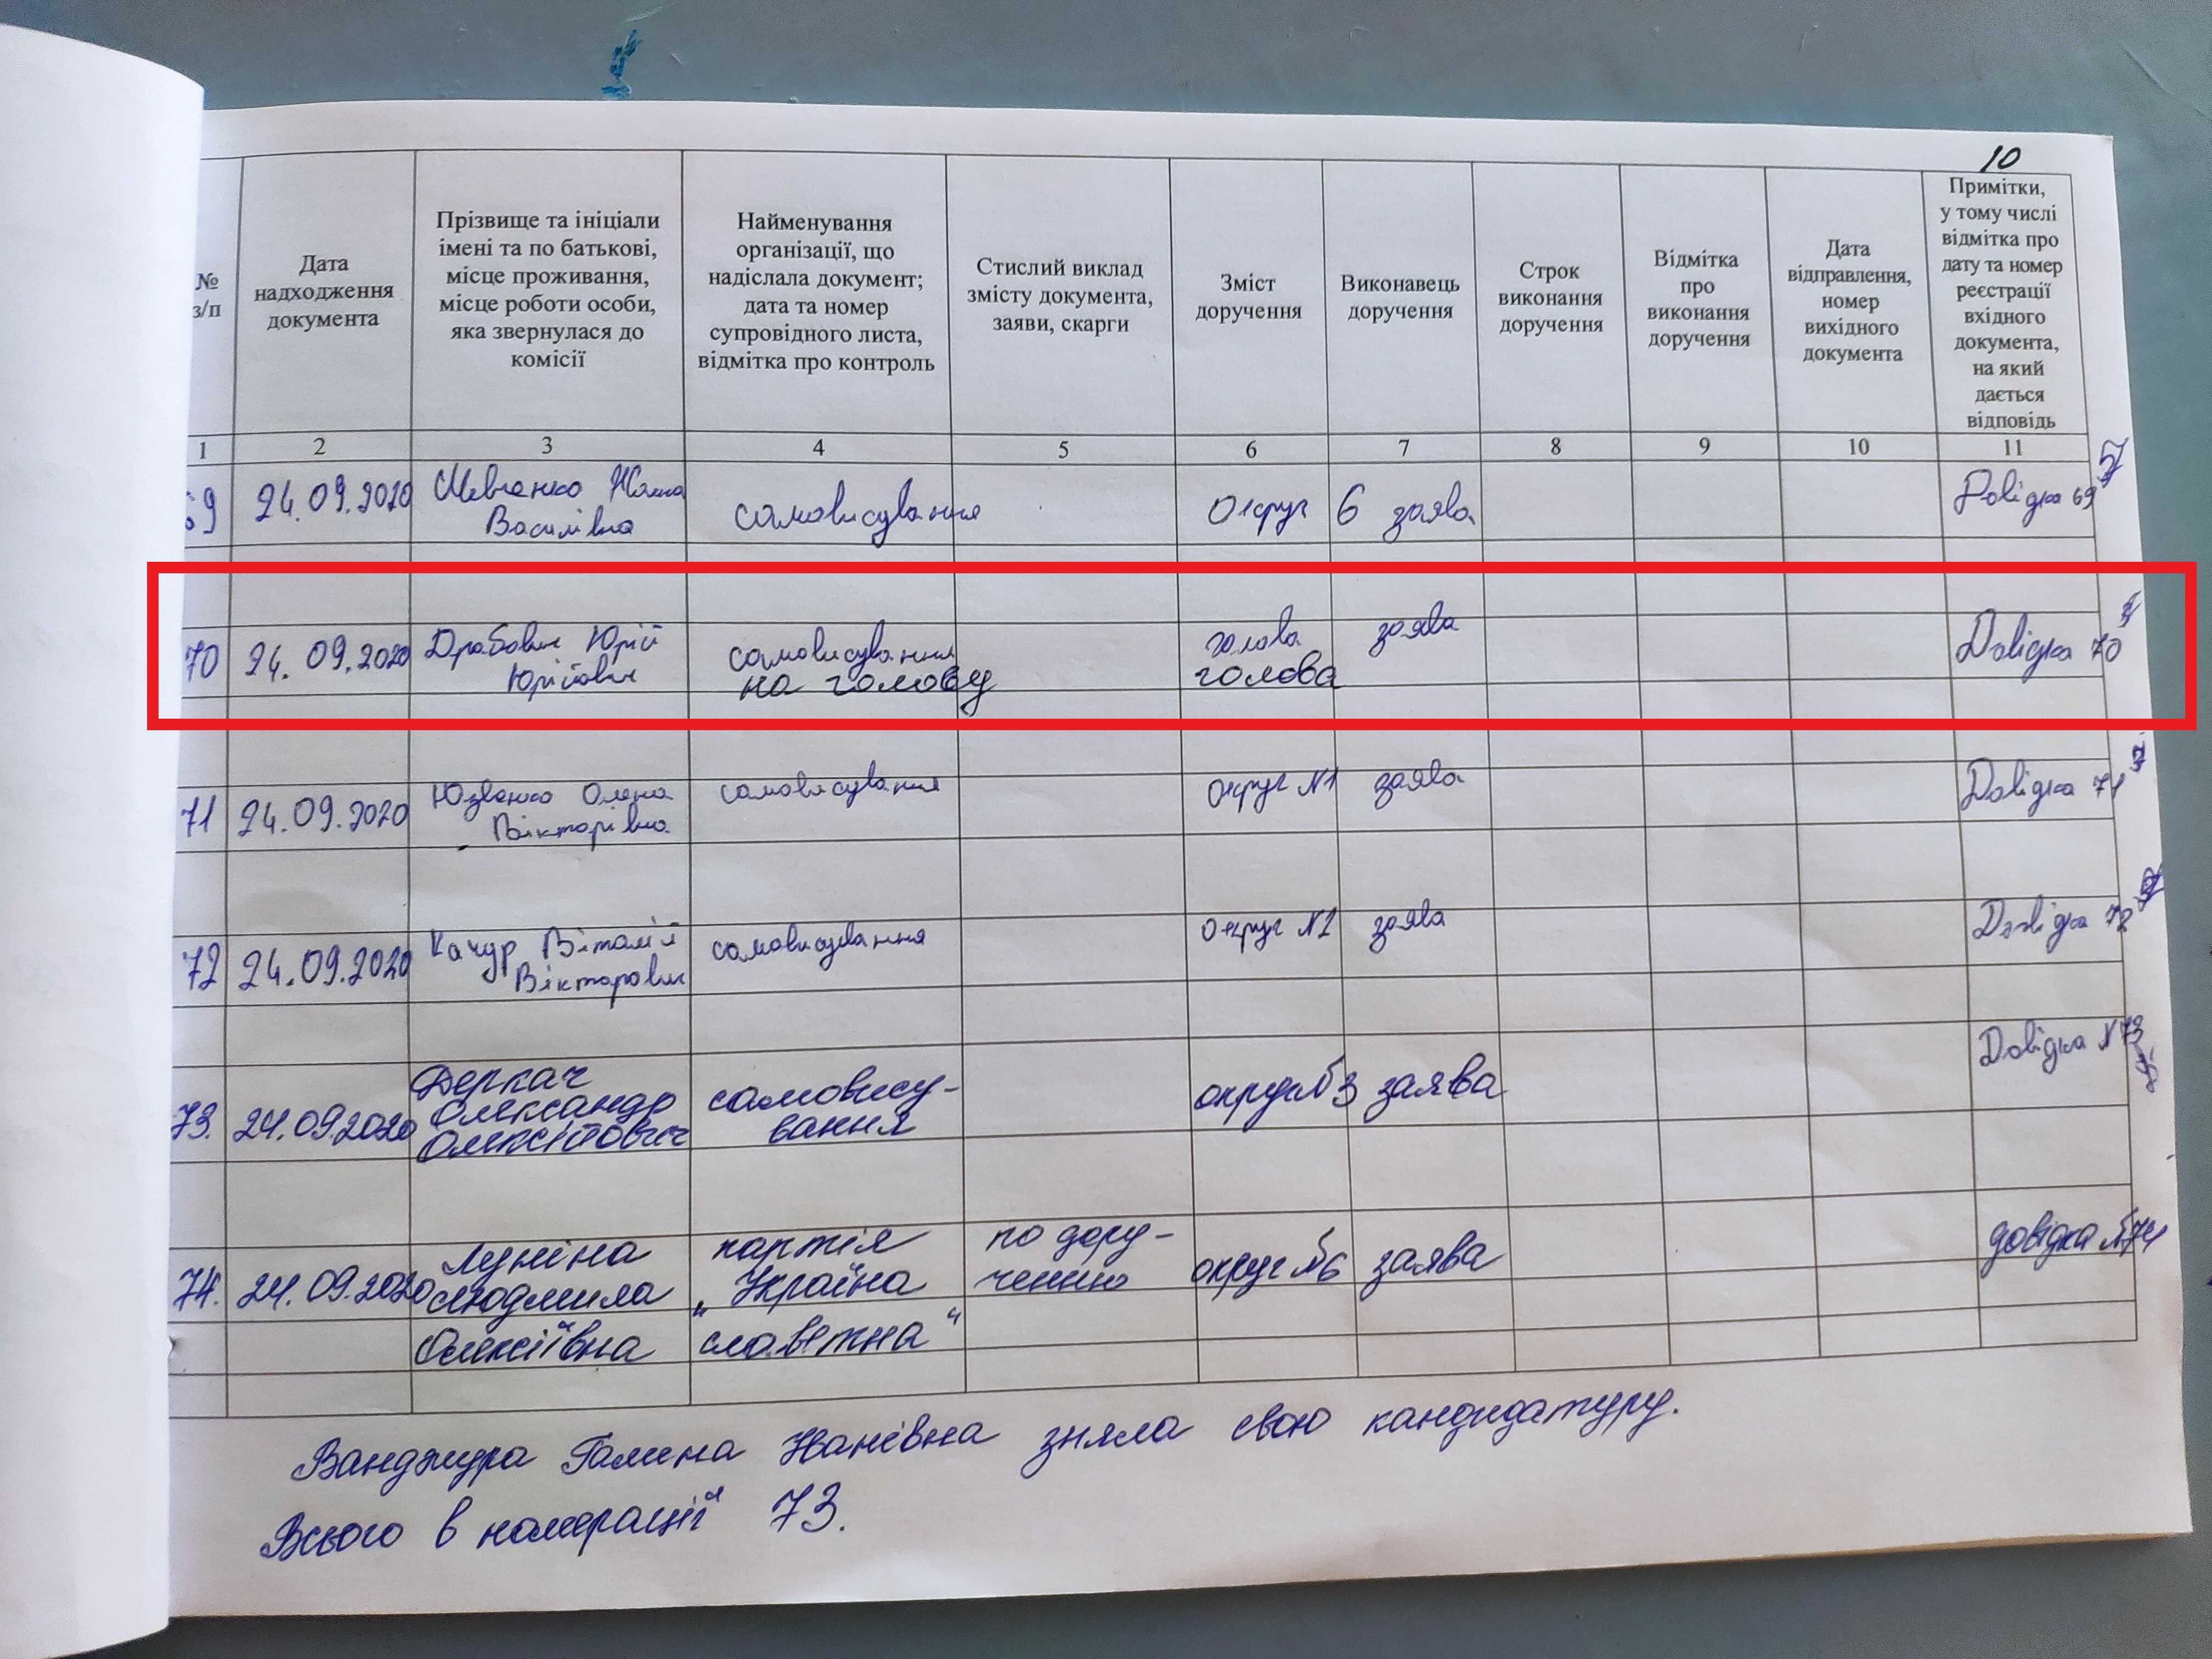 10
№
з/п
Дата
надходження
документа
Прізвище та ініціали
імені та по батькові,
місце проживання,
місце роботи особи,
яка звернулася до
комісії
Найменування
організації, що
надіслала документ;
дата та номер
супровідного листа,
відмітка про контроль
Стислий виклад
змісту документа,
заяви, скарги
Зміст
доручення
Виконавець
доручення
Строк
виконання
доручення
Відмітка
про
виконання
доручення
Дата
відправлення,
номер
вихідного
документа
Примітки,
у тому числі
відмітка про
дату та номер
реєстрації
вхідного
документа,
на який
дається
відповідь
1 2 3 4 5 6 7 8 9 10 11
69 24.09.2020 Шевченко
Василівна
самовисування
Округ 6 заява
Довідка 69
70 24.09.2020 Драбович Юрій
Юрійович
самовисування
на голову
голова
голова
заява
Довідка 70
71 24.09.2020 Юзвенко Олена
Вікторівна
самовисування
округ №1 заява
Довідка 71
72 24.09.2020 Качур Віталій
Вікторович
самовисування
округ заява
Довідка 72
73. 24.09.2020 Деркач
Олександр
Олексійович
самовису-
вання
округ №3 заява
Довідка №73
74. 24.09.2020 Луніна
Людмила
Олексіївна
партія
„Україна
славетна“
по дору-
ченню
округ №6 заява
довідка №74
Ванджура Галина Іванівна зняла свою кандидатуру.
Всього в номерації 73.